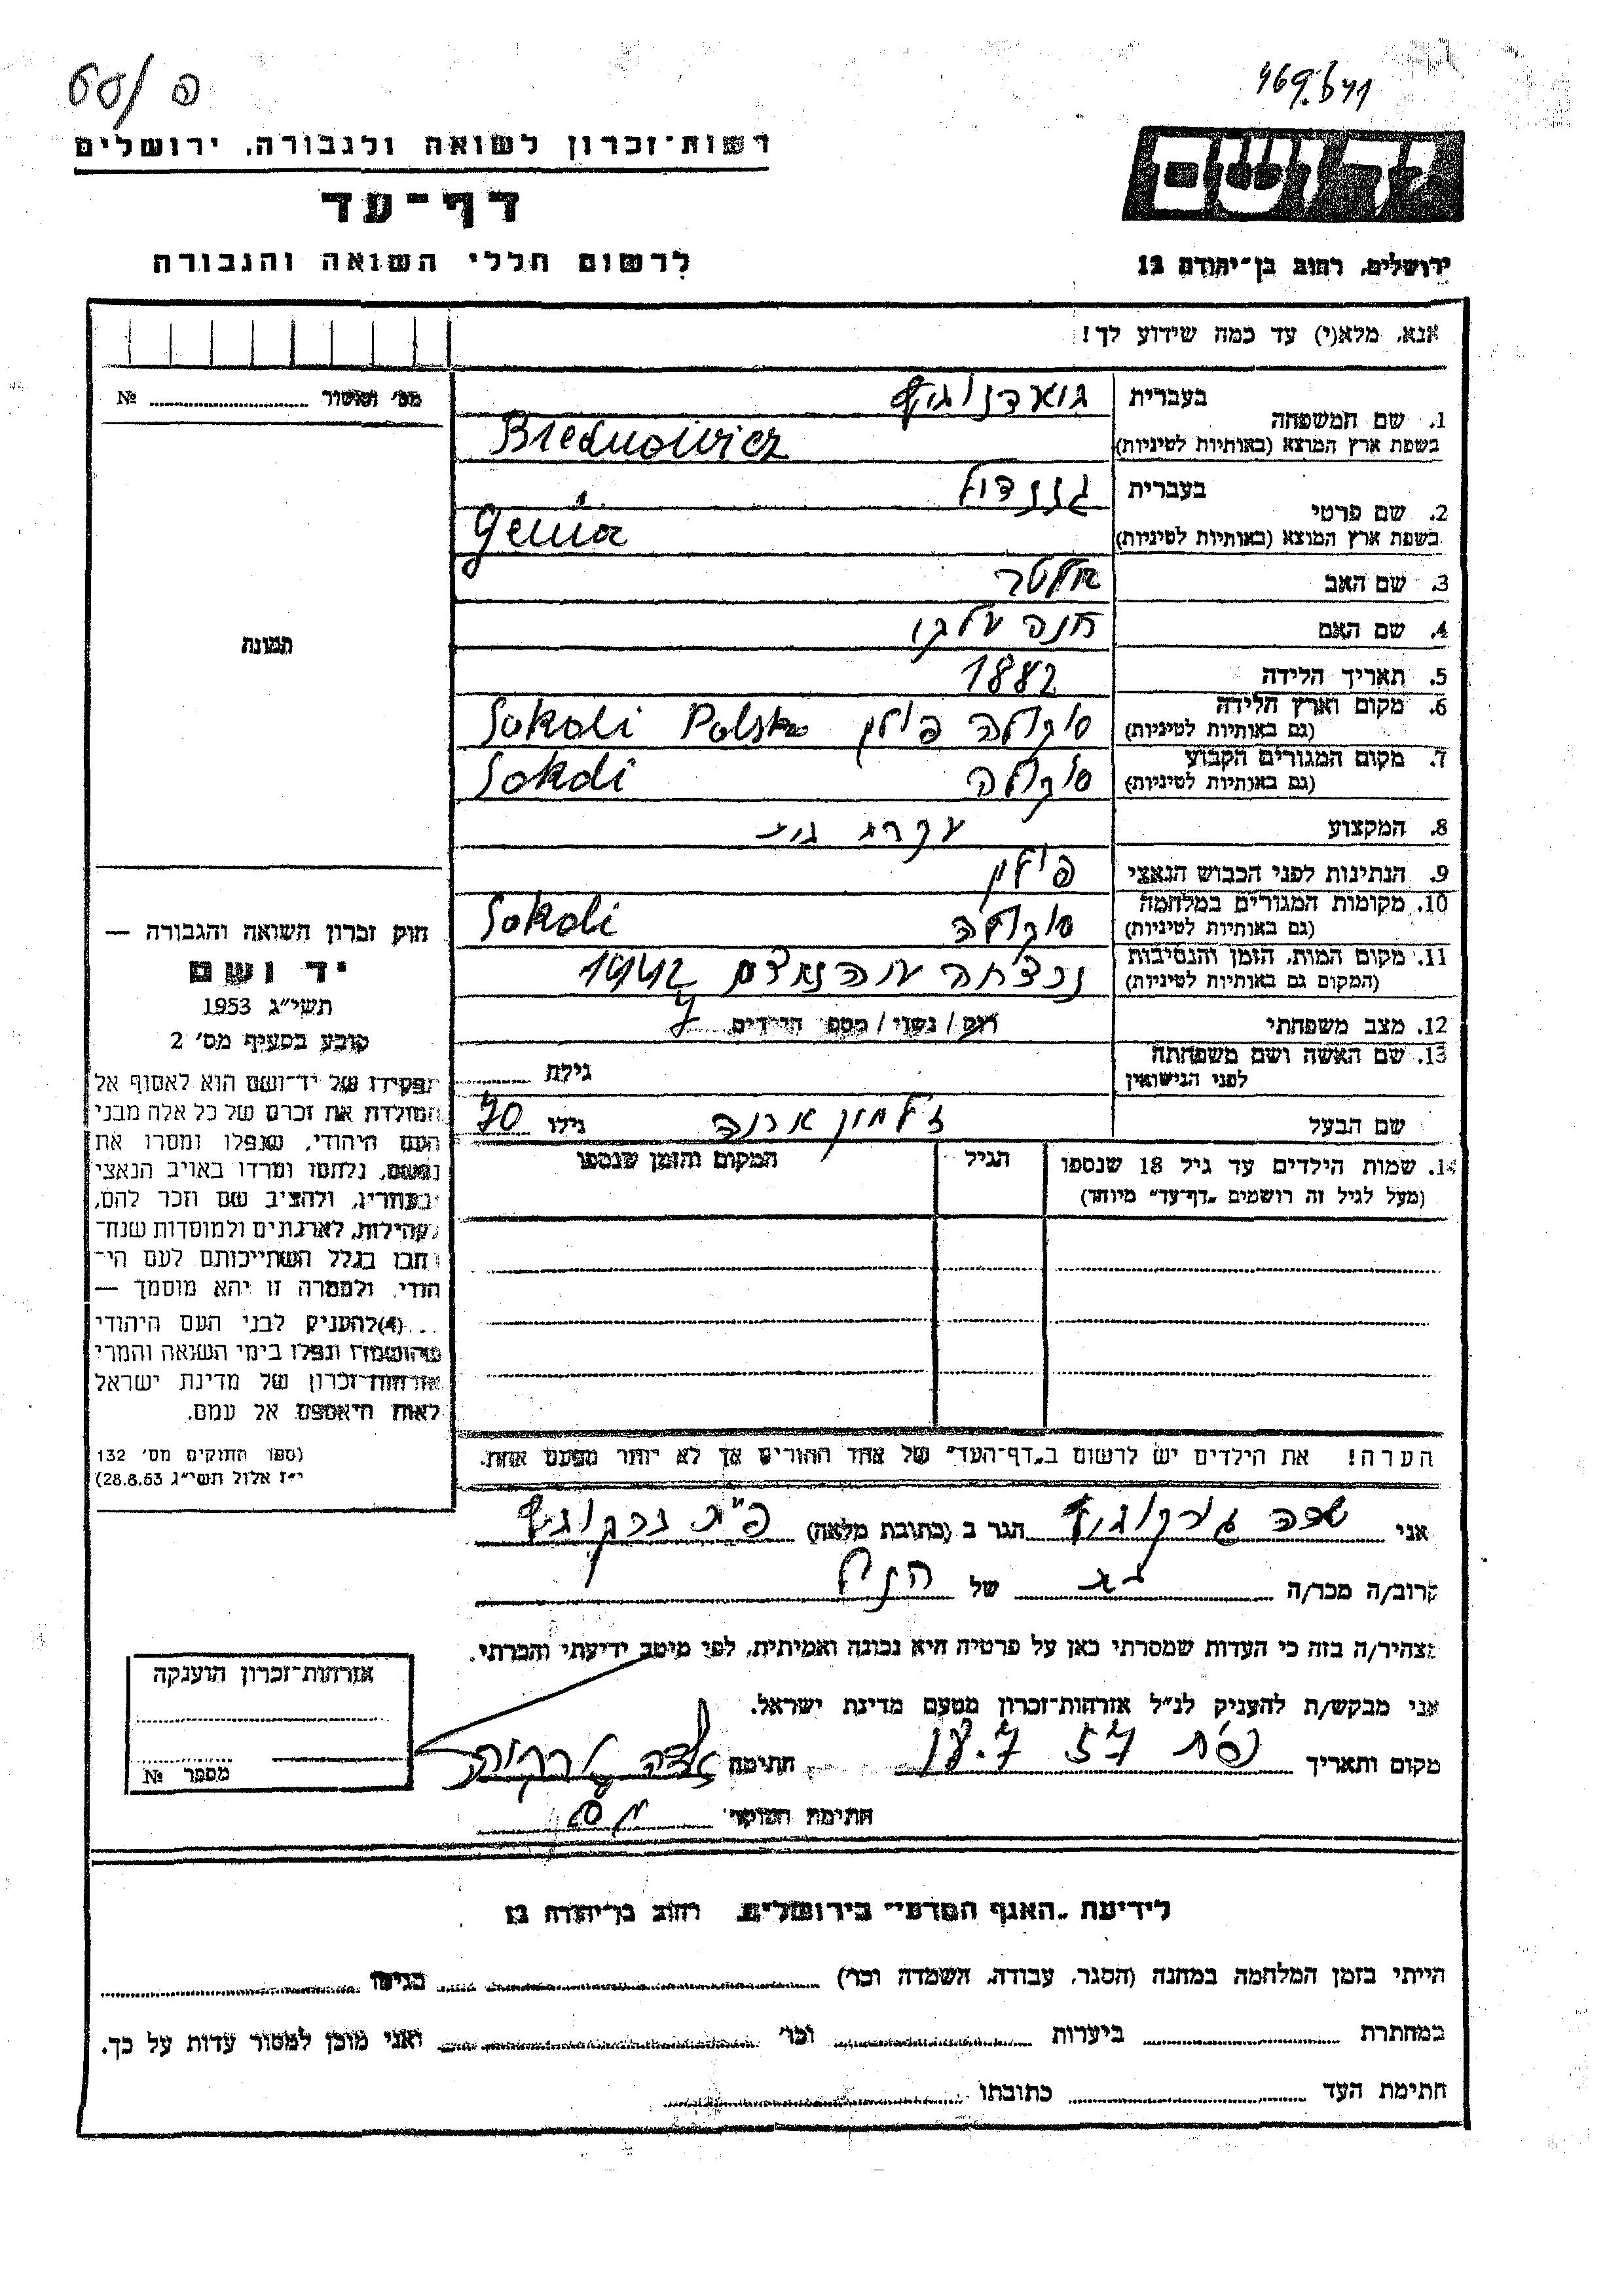 60/ פ
469.641
רשות־זכרון לשואה ולגבורה, ירושלים
יד ושם
דף־עד
לרשום חללי השואה והגבורה
ירושלים, רחוב בן־יהודה 12
אנא, מלא(י) עד כמה שידוע לך!
מס' ואשור № ........
1. שם המשפחה
בעברית
בשפת ארץ המוצא (באותיות לטיניות)
2. שם פרטי
בעברית
בשפת ארץ המוצא (באותיות לטיניות) Genia
3. שם האב אלטר
4. שם האם חנה
5. תאריך הלידה 1882
6. מקום וארץ הלידה
(גם באותיות לטיניות) סוקולה פולין Sokoli Polska
7. מקום המגורים הקבוע
(גם באותיות לטיניות) סוקולה Sokoli
8. המקצוע עקרת בית
9. הנתינות לפני הכבוש הנאצי פולין
10. מקומות המגורים במלחמה
(גם באותיות לטיניות) סוקולה Sokoli
11. מקום המות, הזמן והנסיבות
(המקום גם באותיות לטיניות) נרצחה 1942
12. מצב משפחתי רווק / נשוי / מספר הילדים 7
13. שם האשה ושם משפחתה
לפני הנישואין גילה
שם הבעל גילו 70
14. שמות הילדים עד גיל 18 שנספו הגיל המקום והזמן שנספו
(מעל לגיל זה רושמים „דף־עד" מיוחד)
הערה! את הילדים יש לרשום ב„דף־העד" של אחד ההורים אך לא יותר מפעם אחת.
תמונה
חוק זכרון השואה והגבורה —
יד ושם
תשי"ג 1953
קובע בסעיף מס' 2
תפקידו של יד־ושם הוא לאסוף אל
המולדת את זכרם של כל אלה מבני
העם היהודי, שנפלו ומסרו את
נפשם, נלחמו ומרדו באויב הנאצי
ובעוזריו, ולהציב שם וזכר להם,
לקהילות, לארגונים ולמוסדות שנח־
רבו בגלל השתייכותם לעם הי־
הודי, ולמטרה זו יהא מוסמך —
...(4) להעניק לבני העם היהודי
שהושמדו ונפלו בימי השואה והמרי
אזרחות־זכרון של מדינת ישראל
לאות היאספם אל עמם.
(ספר החוקים מס' 132
י"ז אלול תשי"ג 28.8.53)
אני הגר ב (כתובת מלאה) פ"ת
קרוב/ה מכר/ה של הנ"ל
מצהיר/ה בזה כי העדות שמסרתי כאן על פרטיה היא נכונה ואמיתית, לפי מיטב ידיעתי והכרתי.
אני מבקש/ת להעניק לנ"ל אזרחות־זכרון מטעם מדינת ישראל.
מקום ותאריך 57 .7 חתימה
חתימת הפוקד
אזרחות־זכרון הוענקה
מספר №
לידיעת „האגף המדעי" בירושלים, רחוב בן־יהודה 12
הייתי בזמן המלחמה במחנה (הסגר, עבודה, השמדה וכו') ........ בגיטו ........
במחתרת ........ ביערות ........ וכו' ........ ואני מוכן למסור עדות על כך.
חתימת העד ........ כתובתו ........